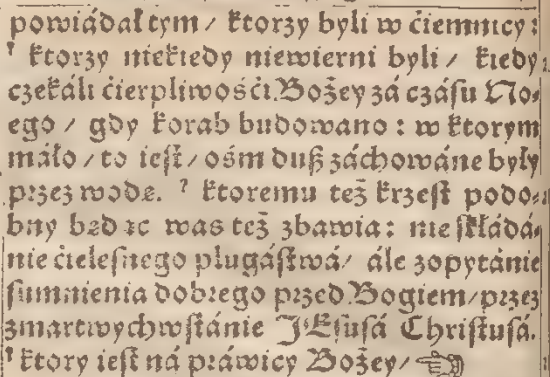 powiádał tym / ktorzy byli w ćiemnicy:
ktorzy niekiedy niewierni byli / kiedy
czekáli ćierpliwośći Bożey zá czásu No⸗
ego / gdy korab budowano: w ktorym
máło / to ieſt / ośm duß záchowáne były
przez wodę. ktoremu też krzeſt podo⸗
bny będąc was też zbawia: nie ſkłádá⸗
nie ćieleſnego plugáſtwá / ále zopytánie
ſumnienia dobrego przed Bogiem / przez
zmartwychwſtánie JEſuſá Chriſtuſá.
ktory ieſt ná práwicy Bożey /